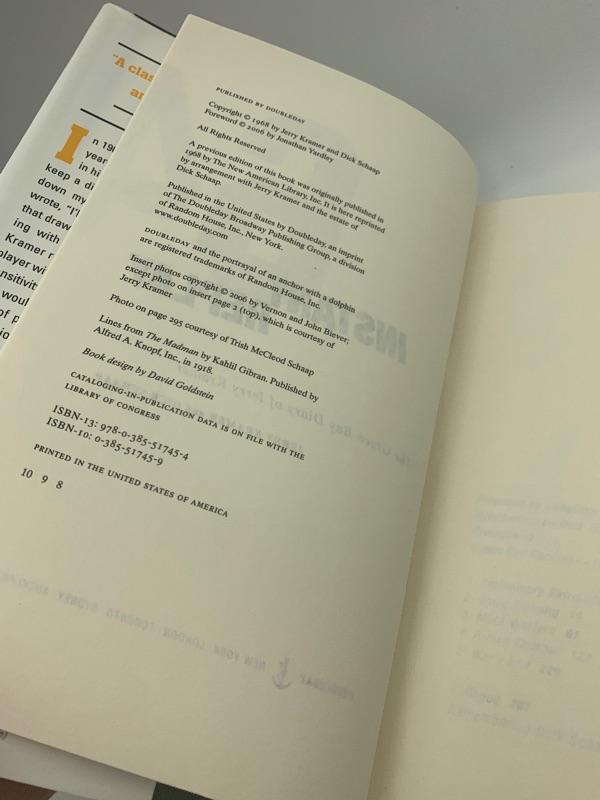 "A clas
an
In 196
year
in hi
keep a di
down my
wrote, "I'l
that draw
ing with
Kramer r
player wi
nsitivit
woul
of p
io
PUBLISHED BY DOUBLEDAY
Copyright © 1968 by Jerry Kramer and Dick Schaap
Foreword © 2006 by Jonathan Yardley
All Rights Reserved
A previous edition of this book was originally published in
1968 by The New American Library, Inc. It is here reprinted
by arrangement with Jerry Kramer and the estate of
Dick Schaap.
Published in the United States by Doubleday, an imprint
of The Doubleday Broadway Publishing Group, a division
of Random House, Inc., New York.
www.doubleday.com
DOUBLEDAY and the portrayal of an anchor with a dolphin
are registered trademarks of Random House, Inc.
Insert photos copyright © 2006 by Vernon and John Biever;
except photo on insert page 2 (top), which is courtesy of
Jerry Kramer
Photo on page 295 courtesy of Trish McCleod Schaap
Lines from The Madman by Kahlil Gibran. Published by
Alfred A. Knopf, Inc., in 1918.
Book design by David Goldstein
CATALOGING-IN-PUBLICATION DATA IS ON FILE WITH THE
LIBRARY OF CONGRESS
ISBN-13: 978-0-385-51745-4
ISBN-10: 0-385-51745-9
PRINTED IN THE UNITED STATES OF AMERICA
10 9 8